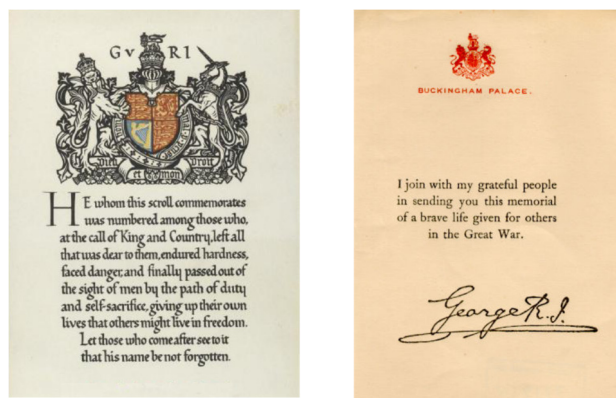 G V R I
Dieu
et mon
Droit
HE whom this scroll commemorates
was numbered among those who,
at the call of King and Country, left all
that was dear to them, endured hardness,
faced danger, and finally passed out of
the sight of men by the path of duty
and self-sacrifice, giving up their own
lives that others might live in freedom.
Let those who come after see to it
that his name be not forgotten.
BUCKINGHAM PALACE.
I join with my grateful people
in sending you this memorial
of a brave life given for others
in the Great War.
George R.I.